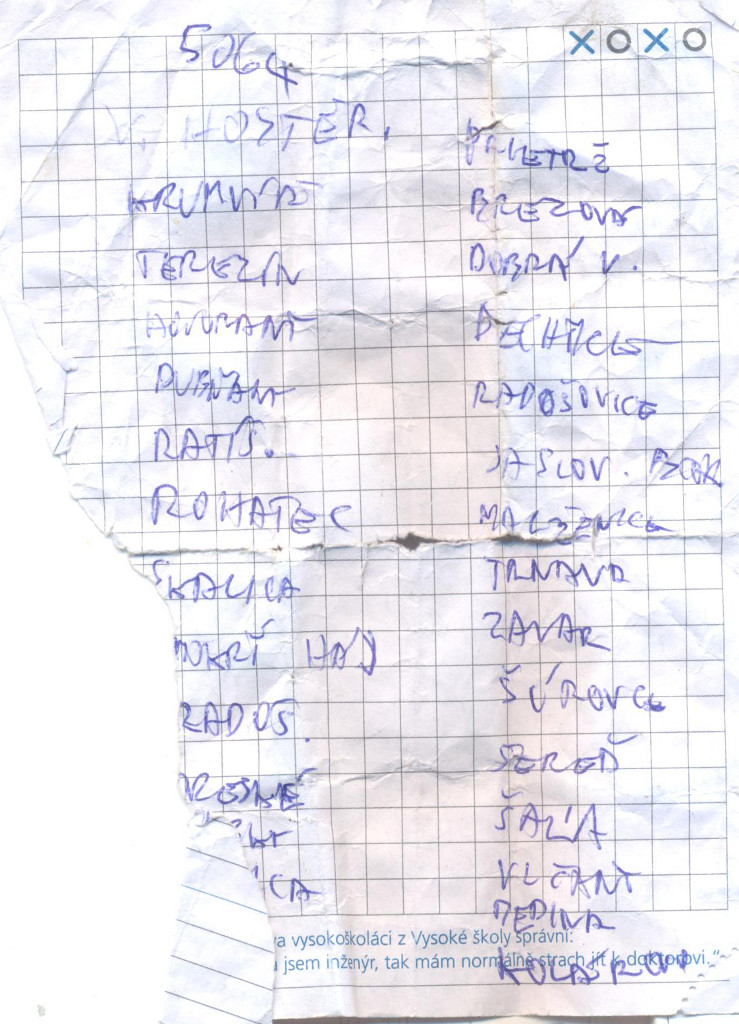 5064
V. HOSTĚR.
KRUMVÍŘ
TEREZÍN
HOVORANY
DUBŇANY
RATÍŠ.
ROHATEC
SKALICA
MOKRÝ HÁJ
RADOŠ.
ICA
PRIETRŽ
BREZOVÁ
DOBRÁ V.
DECHTICE
RADOŠOVICE
JASLOV. BZOV
MALŽENICE
TRNAVA
ZAVAR
ŠÚROVCE
SEREĎ
ŠAĽA
VLČANY
NEDINA
KOLÁROVO
va vysokoškoláci z Vysoké školy správní:
jsem inženýr, tak mám normálně strach jít k doktorovi.“